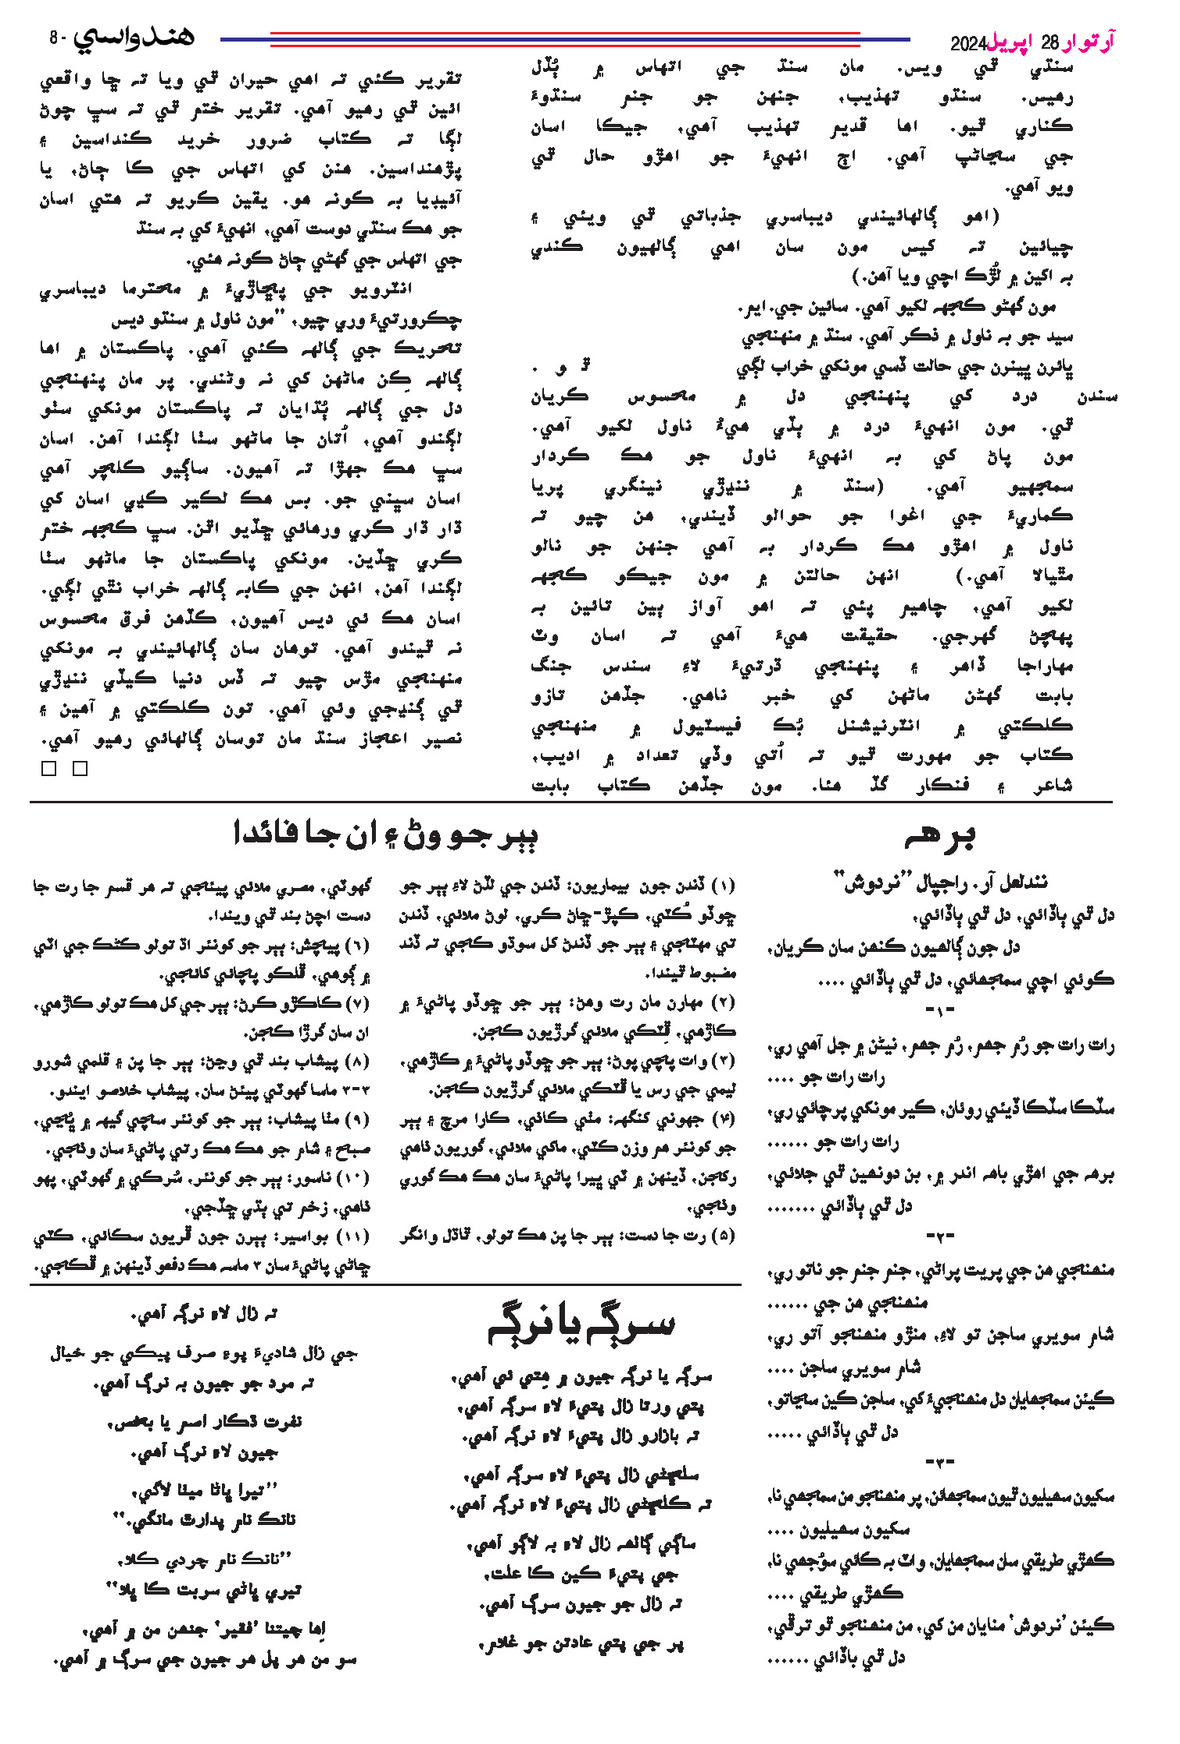 آرتوار 28 اپريل 2024
هندواسي - 8
سنڌي ٿي ويس. مان سنڌ جي اتهاس ۾ ٻُڏل
رهيس. سنڌو تهذيب، جنهن جو جنم سنڌوءَ
ڪناري ٿيو. اها قديم تهذيب آهي، جيڪا اسان
جي سڃاڻپ آهي. اڄ انهيءَ جو اهڙو حال ٿي
ويو آهي.
(اهو ڳالهائيندي ديباسري جذباتي ٿي ويئي ۽
چيائين ته ڪيس مون سان اهي ڳالهيون ڪندي
به اکين ۾ لُڙڪ اچي ويا آهن.)
مون گهڻو ڪجهہ لکيو آهي. سائين جي. ايم.
سيد جو به ناول ۾ ذڪر آهي. سنڌ ۾ منهنجي
ڀائرن ڀينرن جي حالت ڏسي مونکي خراب لڳي ٿو.
سندن درد کي پنهنجي دل ۾ محسوس ڪريان
ٿي. مون انهيءَ درد ۾ ٻڏي هيءُ ناول لکيو آهي.
مون پاڻ کي به انهيءَ ناول جو هڪ ڪردار
سمجهيو آهي. (سنڌ ۾ ننڍڙي نينگري پريا
ڪماريءَ جي اغوا جو حوالو ڏيندي، هن چيو ته
ناول ۾ اهڙو هڪ ڪردار به آهي جنهن جو نالو
مٿيالا آهي.) انهن حالتن ۾ مون جيڪو ڪجهہ
لکيو آهي، چاهيم پئي ته اهو آواز ٻين تائين به
پهچڻ گهرجي. حقيقت هيءَ آهي ته اسان وٽ
مهاراجا ڏاهر ۽ پنهنجي ڌرتيءَ لاءِ سندس جنگ
بابت گهڻن ماڻهن کي خبر ناهي. جڏهن تازو
ڪلڪتي ۾ انٽرنيشنل بُڪ فيسٽيول ۾ منهنجي
ڪتاب جو مهورت ٿيو ته اُتي وڏي تعداد ۾ اديب،
شاعر ۽ فنڪار گڏ هئا. مون جڏهن ڪتاب بابت
تقرير ڪئي ته اهي حيران ٿي ويا ته ڇا واقعي
ائين ٿي رهيو آهي. تقرير ختم ٿي ته سڀ چوڻ
لڳا ته ڪتاب ضرور خريد ڪنداسين ۽
پڙهنداسين. هنن کي اتهاس جي ڪا ڄاڻ، يا
آئيڊيا به ڪونہ هو. يقين ڪريو ته هتي اسان
جو هڪ سنڌي دوست آهي، انهيءَ کي به سنڌ
جي اتهاس جي گهڻي ڄاڻ ڪونہ هئي.
انٽرويو جي پڇاڙيءَ ۾ محترما ديباسري
چڪرورتيءَ وري چيو، ”مون ناول ۾ سنڌو ديس
تحريڪ جي ڳالهہ ڪئي آهي. پاڪستان ۾ اها
ڳالهہ ڪِن ماڻهن کي نہ وڻندي. پر مان پنهنجي
دل جي ڳالهہ ٻُڌايان ته پاڪستان مونکي سٺو
لڳندو آهي، اُتان جا ماڻهو سٺا لڳندا آهن. اسان
سڀ هڪ جهڙا ته آهيون. ساڳيو ڪلچر آهي
اسان سڀني جو. بس هڪ لڪير ڪڍي اسان کي
ڌار ڌار ڪري ورهائي ڇڏيو اٿن. سڀ ڪجهہ ختم
ڪري ڇڏين. مونکي پاڪستان جا ماڻهو سٺا
لڳندا آهن، انهن جي ڪابہ ڳالهہ خراب نٿي لڳي.
اسان هڪ ئي ديس آهيون، ڪڏهن فرق محسوس
نہ ٿيندو آهي. توهان سان ڳالهائيندي به مونکي
منهنجي مڙس چيو ته ڏس دنيا ڪيڏي ننڍڙي
ٿي ڳنڍجي وئي آهي. تون ڪلڪتي ۾ آهين ۽
نصير اعجاز سنڌ مان توسان ڳالهائي رهيو آهي.
برهہ
نندلعل آر. راجپال ”نردوش“
دل ٿي ٻاڏائي، دل ٿي ٻاڏائي،
دل جون ڳالهيون ڪنهن سان ڪريان،
ڪوئي اچي سمجهائي، دل ٿي ٻاڏائي ....
-۱-
رات رات جو رُم جهم، رُم جهم، نيڻن ۾ جل آهي ري،
رات رات جو ....
سڏڪا سڏڪا ڏيئي روئان، ڪير مونکي پرچائي ري،
رات رات جو ......
برهہ جي اهڙي باهہ اندر ۾، بن دونهين ٿي جلائي،
دل ٿي ٻاڏائي .......
-۲-
منهنجي هن جي پريت پراڻي، جنم جنم جو ناتو ري،
منهنجي هن جي ......
شام سويري ساجن تو لاءِ، منڙو منهنجو آتو ري،
شام سويري ساجن ....
ڪيئن سمجهايان دل منهنجيءَ کي، ساجن ڪين سڃاتو،
دل ٿي ٻاڏائي .....
-۳-
سکيون سهيليون ٿيون سمجهائن، پر منهنجو من سمجهي نا،
سکيون سهيليون ....
ڪهڙي طريقي سان سمجهايان، واٽ به ڪائي سوُجهي نا،
ڪهڙي طريقي ....
ڪيئن ’نردوش‘ منايان من کي، من منهنجو ٿو ترڦي،
دل ٿي ٻاڏائي ......
ٻٻر جو وڻ ۽ ان جا فائدا
(۱) ڏندن جون بيماريون: ڏندن جي لڏڻ لاءِ ٻٻر جو
ڇوڏو ڪُٽي، ڪپڙ-ڇاڻ ڪري، لوڻ ملائي، ڏندن
تي مهٽجي ۽ ٻٻر جو ڏندڻ کل سوڌو ڪجي ته ڏند
مضبوط ٿيندا.
(۲) مهارن مان رت وهڻ: ٻٻر جو ڇوڏو پاڻيءَ ۾
ڪاڙهي، ڦٽڪي ملائي گرڙيون ڪجن.
(۳) وات پچي پوڻ: ٻٻر جو ڇوڏو پاڻيءَ ۾ ڪاڙهي،
ليمي جي رس يا ڦٽڪي ملائي گرڙيون ڪجن.
(۴) جهوني کنگهہ: مٺي ڪاٺي، ڪارا مرچ ۽ ٻٻر
جو کونئر هم وزن ڪٽي، ماکي ملائي، گوريون ٺاهي
رکجن. ڏينهن ۾ ٽي ڀيرا پاڻيءَ سان هڪ هڪ گوري
وٺجي.
(۵) رت جا دست: ٻٻر جا پن هڪ تولو، ٿاڌل وانگر
گهوٽي، مصري ملائي پيئجي ته هر قسم جا رت جا
دست اچڻ بند ٿي ويندا.
(۶) پيچش: ٻٻر جو کونئر اڌ تولو ڪڻڪ جي اٽي
۾ ڳوهي، ڦلڪو پچائي کائجي.
(۷) ڪاڪڙو ڪرڻ: ٻٻر جي کل هڪ تولو ڪاڙهي،
ان سان گرڙا ڪجن.
(۸) پيشاب بند ٿي وڃڻ: ٻٻر جا پن ۽ قلمي شورو
۳-۳ ماسا گهوٽي پيئڻ سان، پيشاب خلاصو ايندو.
(۹) مٺا پيشاب: ٻٻر جو کونئر سچي گيهہ ۾ ڀُڃي،
صبح ۽ شام جو هڪ هڪ رتي پاڻيءَ سان وٺجي.
(۱۰) ناسور: ٻٻر جو کونئر، سُرڪي ۾ گهوٽي، پهو
ٺاهي، زخم تي ٻڌي ڇڏجي.
(۱۱) بواسير: ٻٻرن جون ڦريون سڪائي، ڪٽي
ڇاڻي پاڻيءَ سان ۳ ماسہ هڪ دفعو ڏينهن ۾ ڦڪجي.
سرڳہ يا نرڳہ
سرڳہ يا نرڳہ جيون ۾ هِتي ئي آهي،
پتي ورتا زال پتيءَ لاءِ سرڳہ آهي،
ته بازارو زال پتيءَ لاءِ نرڳہ آهي.
سلڇڻي زال پتيءَ لاءِ سرڳہ آهي،
ته ڪلڇڻي زال پتيءَ لاءِ نرڳہ آهي.
ساڳي ڳالهہ زال لاءِ به لاڳو آهي،
جي پتيءَ ڪين ڪا علت،
ته زال جو جيون سرڳ آهي.
پر جي پتي عادتن جو غلام،
ته زال لاءِ نرڳہ آهي.
جي زال شاديءَ پوءِ صرف پيڪي جو خيال
ته مرد جو جيون به نرڳ آهي.
نفرت ڌڪار اسم يا بخص،
جيون لاءِ نرڳ آهي.
”تيرا ڀاڻا ميٺا لاگي،
نانڪ نام پدارٿ مانگي.“
”نانڪ نام چردي ڪلا،
تيري ڀاڻي سربت ڪا ڀلا“
اِها چيتنا ’فقير‘ جنهن من ۾ آهي،
سو من هر پل هر جيون جي سرڳ ۾ آهي.